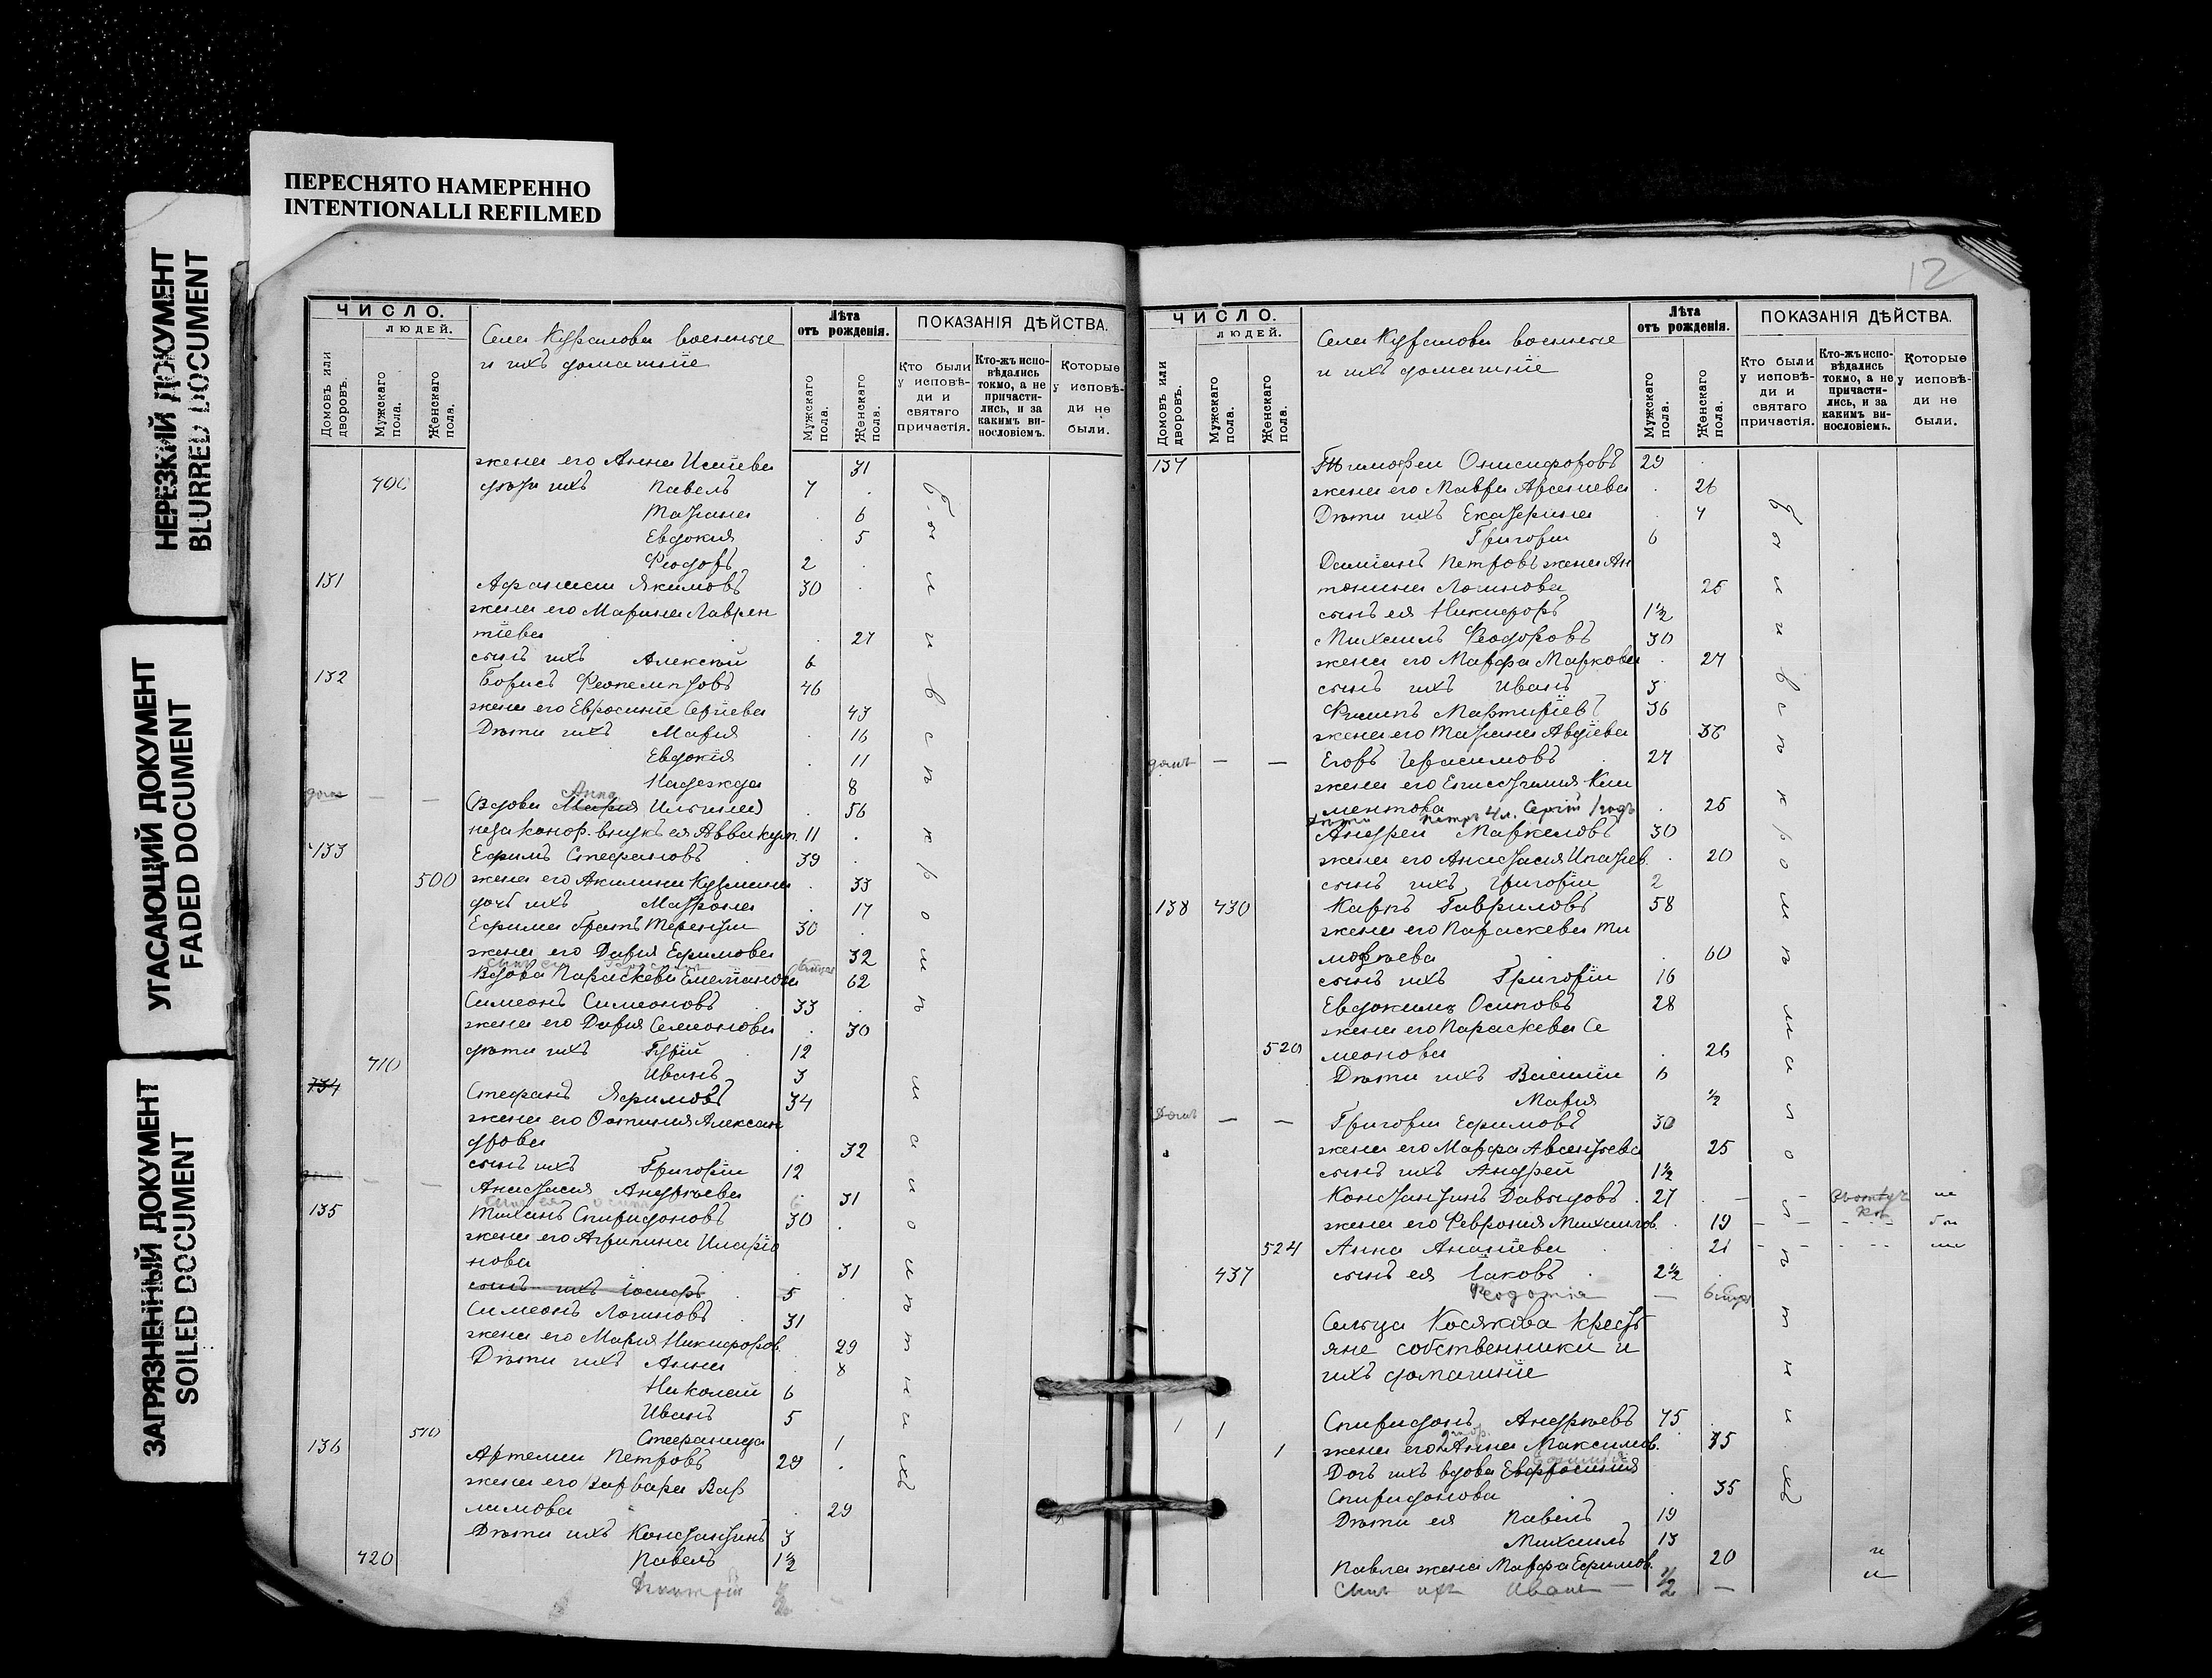 ПЕРЕСНЯТО НАМЕРЕННО
INTENTIONALLI REFILMED
НЕРЕЗКИЙ ДОКУМЕНТ
BLURRED DOCUMENT
УГАСАЮЩИЙ ДОКУМЕНТ
FADED DOCUMENT
ЗАГРЯЗНЕННЫЙ ДОКУМЕНТ
SOILED DOCUMENT
ЧИСЛО.
ЛЮДЕЙ.
Домовъ или дворовъ.
Мужскаго пола.
Женскаго пола.
Села военные
и ихъ домашнiе
Лѣта
отъ рожденія.
Мужскаго пола.
Женскаго пола.
ПОКАЗАНІЯ ДѢЙСТВА.
Кто были у исповѣди и святаго причастія.
Кто-жъ исповѣдались токмо, а не причастились, и за какимъ винословіемъ.
Которые у исповѣди не были.
жена его Анна Исаiева 31
400 дѣти ихъ Павелъ 7
Татiана 6
Евдокiя 5
Феодоръ 2
131 Афанасiи Якимовъ 30
жена его Марина Лаврен
тiева 27
сынъ ихъ Алексѣй 6
132 Борисъ 46
жена его Евросинiе Сергiева 43
Дѣти ихъ Марiя 16
Евдокiя 11
Надежда 8
Анна
(Вдова Марiя Ильина) 56
внукъ ея Аввакум. 11
133 Ефимъ Стефановъ 39
500 жена его Акилина Кузмина 33
дочь ихъ Матрона 17
Ефима братъ Терентiи 30
жена его Дарiя Ефимова 32
Вдова Параскева Емелiанова 62
Симеонъ Симеоновъ 33
жена его Дарiя Семионова 30
дѣти ихъ Гурiй 12
410 Иванъ 3
134 Стефанъ Яфимовъ 34
жена его Фотинiя Алексан
дрова 32
сынъ ихъ Григорiи 12
Анастасiя Андрѣева 31
135 Спиридоновъ 30
жена его Агрипина Иларiо
нова 31
сынъ ихъ Iосифъ 5
Симеонъ Логиновъ 31
жена его Марiя Никифоров. 29
Дѣти ихъ Анна 8
Николай 6
Иванъ 5
510 Стефанида 1
136 Артемiи Петровъ 29
жена его Варвара Вар
ламова 29
Дѣти ихъ Константинъ 3
420 Павелъ 1½
Дмитрiи
были в с п к р о м п м а л о л п т н и хъ
12
ЧИСЛО.
ЛЮДЕЙ.
Домовъ или дворовъ.
Мужскаго пола.
Женскаго пола.
Села военные
и ихъ домашнiе
Лѣта
отъ рожденія.
Мужскаго пола.
Женскаго пола.
ПОКАЗАНІЯ ДѢЙСТВА.
Кто были у исповѣди и святаго причастія.
Кто-жъ исповѣдались токмо, а не причастились, и за какимъ винословіемъ.
Которые у исповѣди не были.
137 Тимофеи Онисифоровъ 29
жена его Мавра Арсениева 26
Дѣти ихъ Екатерина 4
Григорiи 6
Дамiанъ Петровъ жена Ан
тонина Логинова 25
сынъ ея Никифоръ 1½
Михаилъ Феодоровъ 30
жена его Марфа Маркова 27
сынъ ихъ Иванъ 3
Филипъ Мартирiевъ 36
жена его Татiана Авдiева 36
домъ — — Егоръ Герасимовъ 27
жена его Епистимiя Кли
ментова 25
Андреи Маркеловъ 30
жена его Анастасiя Игнатiев. 20
сынъ ихъ Григорiи 2
138 430 Карпъ Гавриловъ 58
жена его Параскева Ти
мофѣева 60
сынъ ихъ Григорiи 16
Евдокимъ Осиповъ 28
жена его Параскева Се
520 меонова 26
Дѣти ихъ Василiи 6
Марiя ½
Домъ — — Григорiи Ефимовъ 30
жена его Марфа Авсентьева 25
сынъ ихъ Андрей 1½
Константинъ Давыдовъ 27
жена его Феврония Михаилов. 19
524 Анна Ананiева 21
437 сынъ ея Iаковъ 2½
Сельца Косякова кресть
яне собственники и
ихъ домашнiе
1 1 Спиридонъ Андрѣевъ 75
1 жена его Анна Максимов. 35
Дочь ихъ вдова Евфросинiя
Спиридонова 35
Дѣти ея Павелъ 19
Михаилъ 13
Павла жена Марфа Ефимов. 20
Сынъ ихъ Иванъ — ½ —